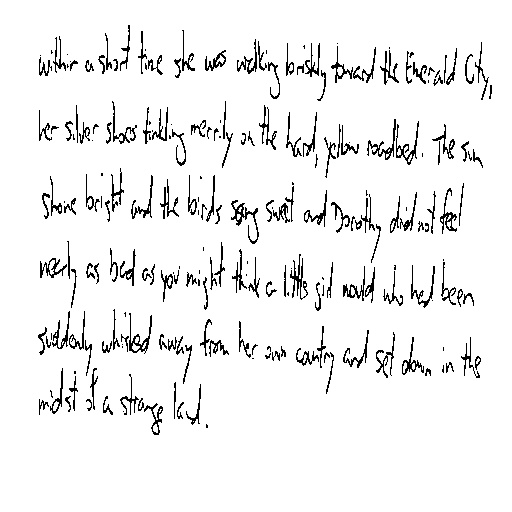 within a short time she was walking briskly toward the Emerald City,
her silver shoes tinkling merrily on the hard, yellow roadbed. The sun
shone bright and the birds sang sweet and Dorothy did not feel
nearly as bad as you might think a little girl would who had been
suddenly whisked away from her own country and set down in the
midst of a strange land.